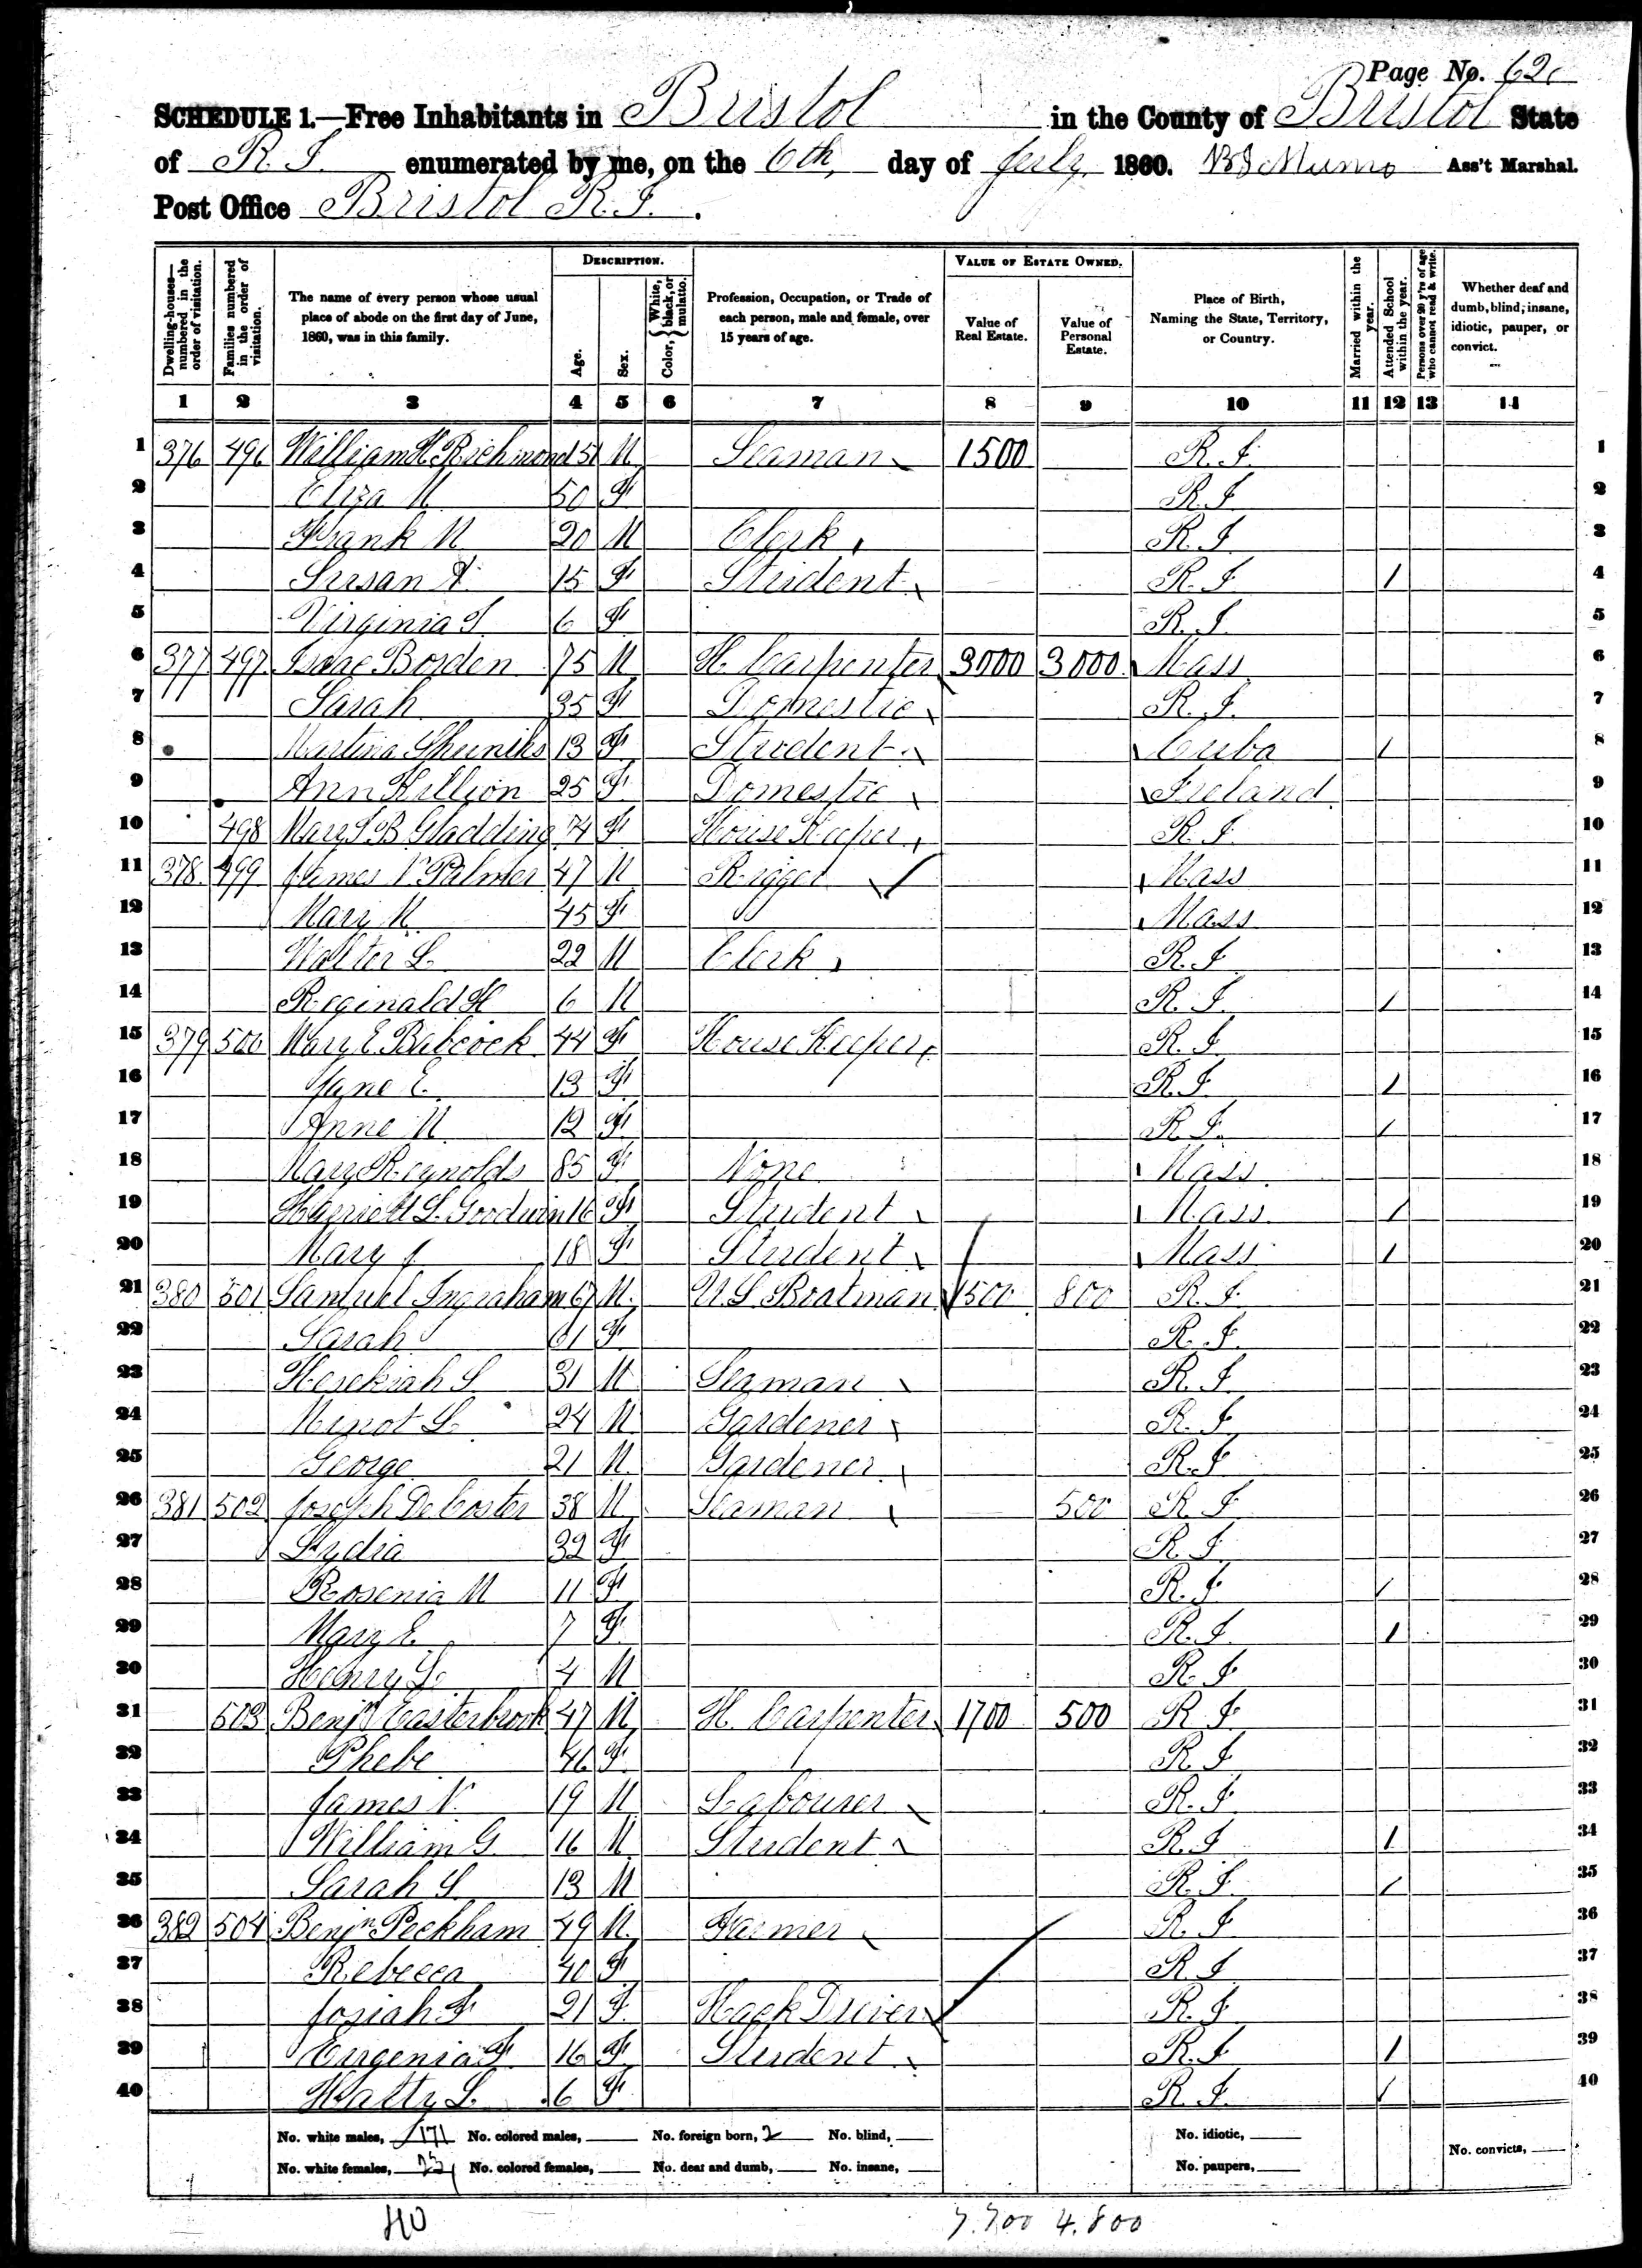 Page No. 62
SCHEDULE 1.—Free Inhabitants in Bristol in the County of Bristol State
of R.I. enumerated by me, on the 6th, day of July 1860. Ass't Marshal.
Post Office Bristol R.I.
Dwelling-houses—numbered in the order of visitation. Families numbered in the order of visitation. The name of every person whose usual place of abode on the first day of June, 1860, was in this family. DESCRIPTION. Age. Sex. Color, {White, black, or mulatto.} Profession, Occupation, or Trade of each person, male and female, over 15 years of age. VALUE OF ESTATE OWNED. Value of Real Estate. Value of Personal Estate. Place of Birth, Naming the State, Territory, or Country. Married within the year. Attended School within the year. Persons over 20 y'rs of age who cannot read & write. Whether deaf and dumb, blind, insane, idiotic, pauper, or convict.
1 2 3 4 5 6 7 8 9 10 11 12 13 14
1 376 496 William H. Richmond 51 M Seaman 1500 R.I. 1
2 Eliza M 50 F R.I. 2
3 Frank M 20 M Clerk R.I. 3
4 Susan A. 15 F Student R.I. / 4
5 Virginia S 6 F R.I. 5
6 377 497 Isaac Borden 75 M H. Carpenter 3000 3000 Mass 6
7 Sarah 35 F Domestic R.I. 7
8 Martina 13 F Student Cuba / 8
9 Ann Killion 25 F Domestic Ireland 9
10 498 Mary S B Gladding 74 F House Keeper R.I. 10
11 378 499 James V Palmer 47 M Rigger Mass 11
12 Mary M. 45 F Mass 12
13 Walter L. 22 M Clerk R.I. 13
14 Reginald H 6 M R.I. / 14
15 379 500 Mary E. Babcock 44 F House Keeper R.I. 15
16 Jane E. 13 F R.I. / 16
17 Anne M 12 F R.I. / 17
18 Mary Reynolds 85 F None Mass. 18
19 Harriett L. Goodwin 16 F Student Mass. / 19
20 Mary J 18 F Student Mass / 20
21 380 501 Samuel Ingraham 67 M. U.S. Boatman 1500 800 R.I. 21
22 Sarah 61 F R.I. 22
23 Hesekiah S 31 M Seaman R.I. 23
24 Minot L. 24 M Gardener R.I. 24
25 George 21 M. Gardener R.I. 25
26 381 502 Joseph DeCoster 38 M Seaman 500 R.I. 26
27 Lydia 32 F R.I. 27
28 Rosenia M 11 F R.I. / 28
29 Mary E. 7 F R.I. / 29
30 Henry L. 4 M R.I. 30
31 503 Benjn Easterbrook 47 M H. Carpenter 1700 500 R.I. 31
32 Phebe 46 F R.I. 32
33 James N. 19 M Labourer R.I. 33
34 William G. 16 M Student R.I. / 34
35 Sarah S. 13 M R.I. / 35
36 382 504 Benjn Peckham 49 M. Farmer R.I. 36
37 Rebecca 40 F R.I. 37
38 Josiah F 21 F. Hack Driver R.I. 38
39 Eugenia F. 16 F Student R.I. / 39
40 Hatty L. 6 F R.I. / 40
No. white males, 17 No. colored males, No. foreign born, 2 No. blind, No. idiotic, No. convicts,
No. white females, 23 No. colored females, No. deaf and dumb, No. insane, No. paupers,
40 7.700 4.800